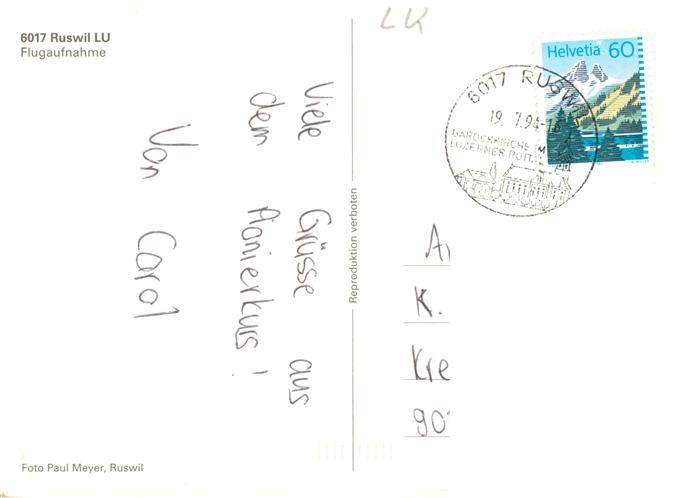 6017 Ruswil LU
Flugaufnahme
Viele Grüsse aus
dem Pionierkurs!
Von Carol
Foto Paul Meyer, Ruswil
Reproduktion verboten
LK
Helvetia 60
6017 RUSWIL
19.7.94-
BAROCKKIRCHE IM
LUZERNER ROTT
A
K.
Kre
90